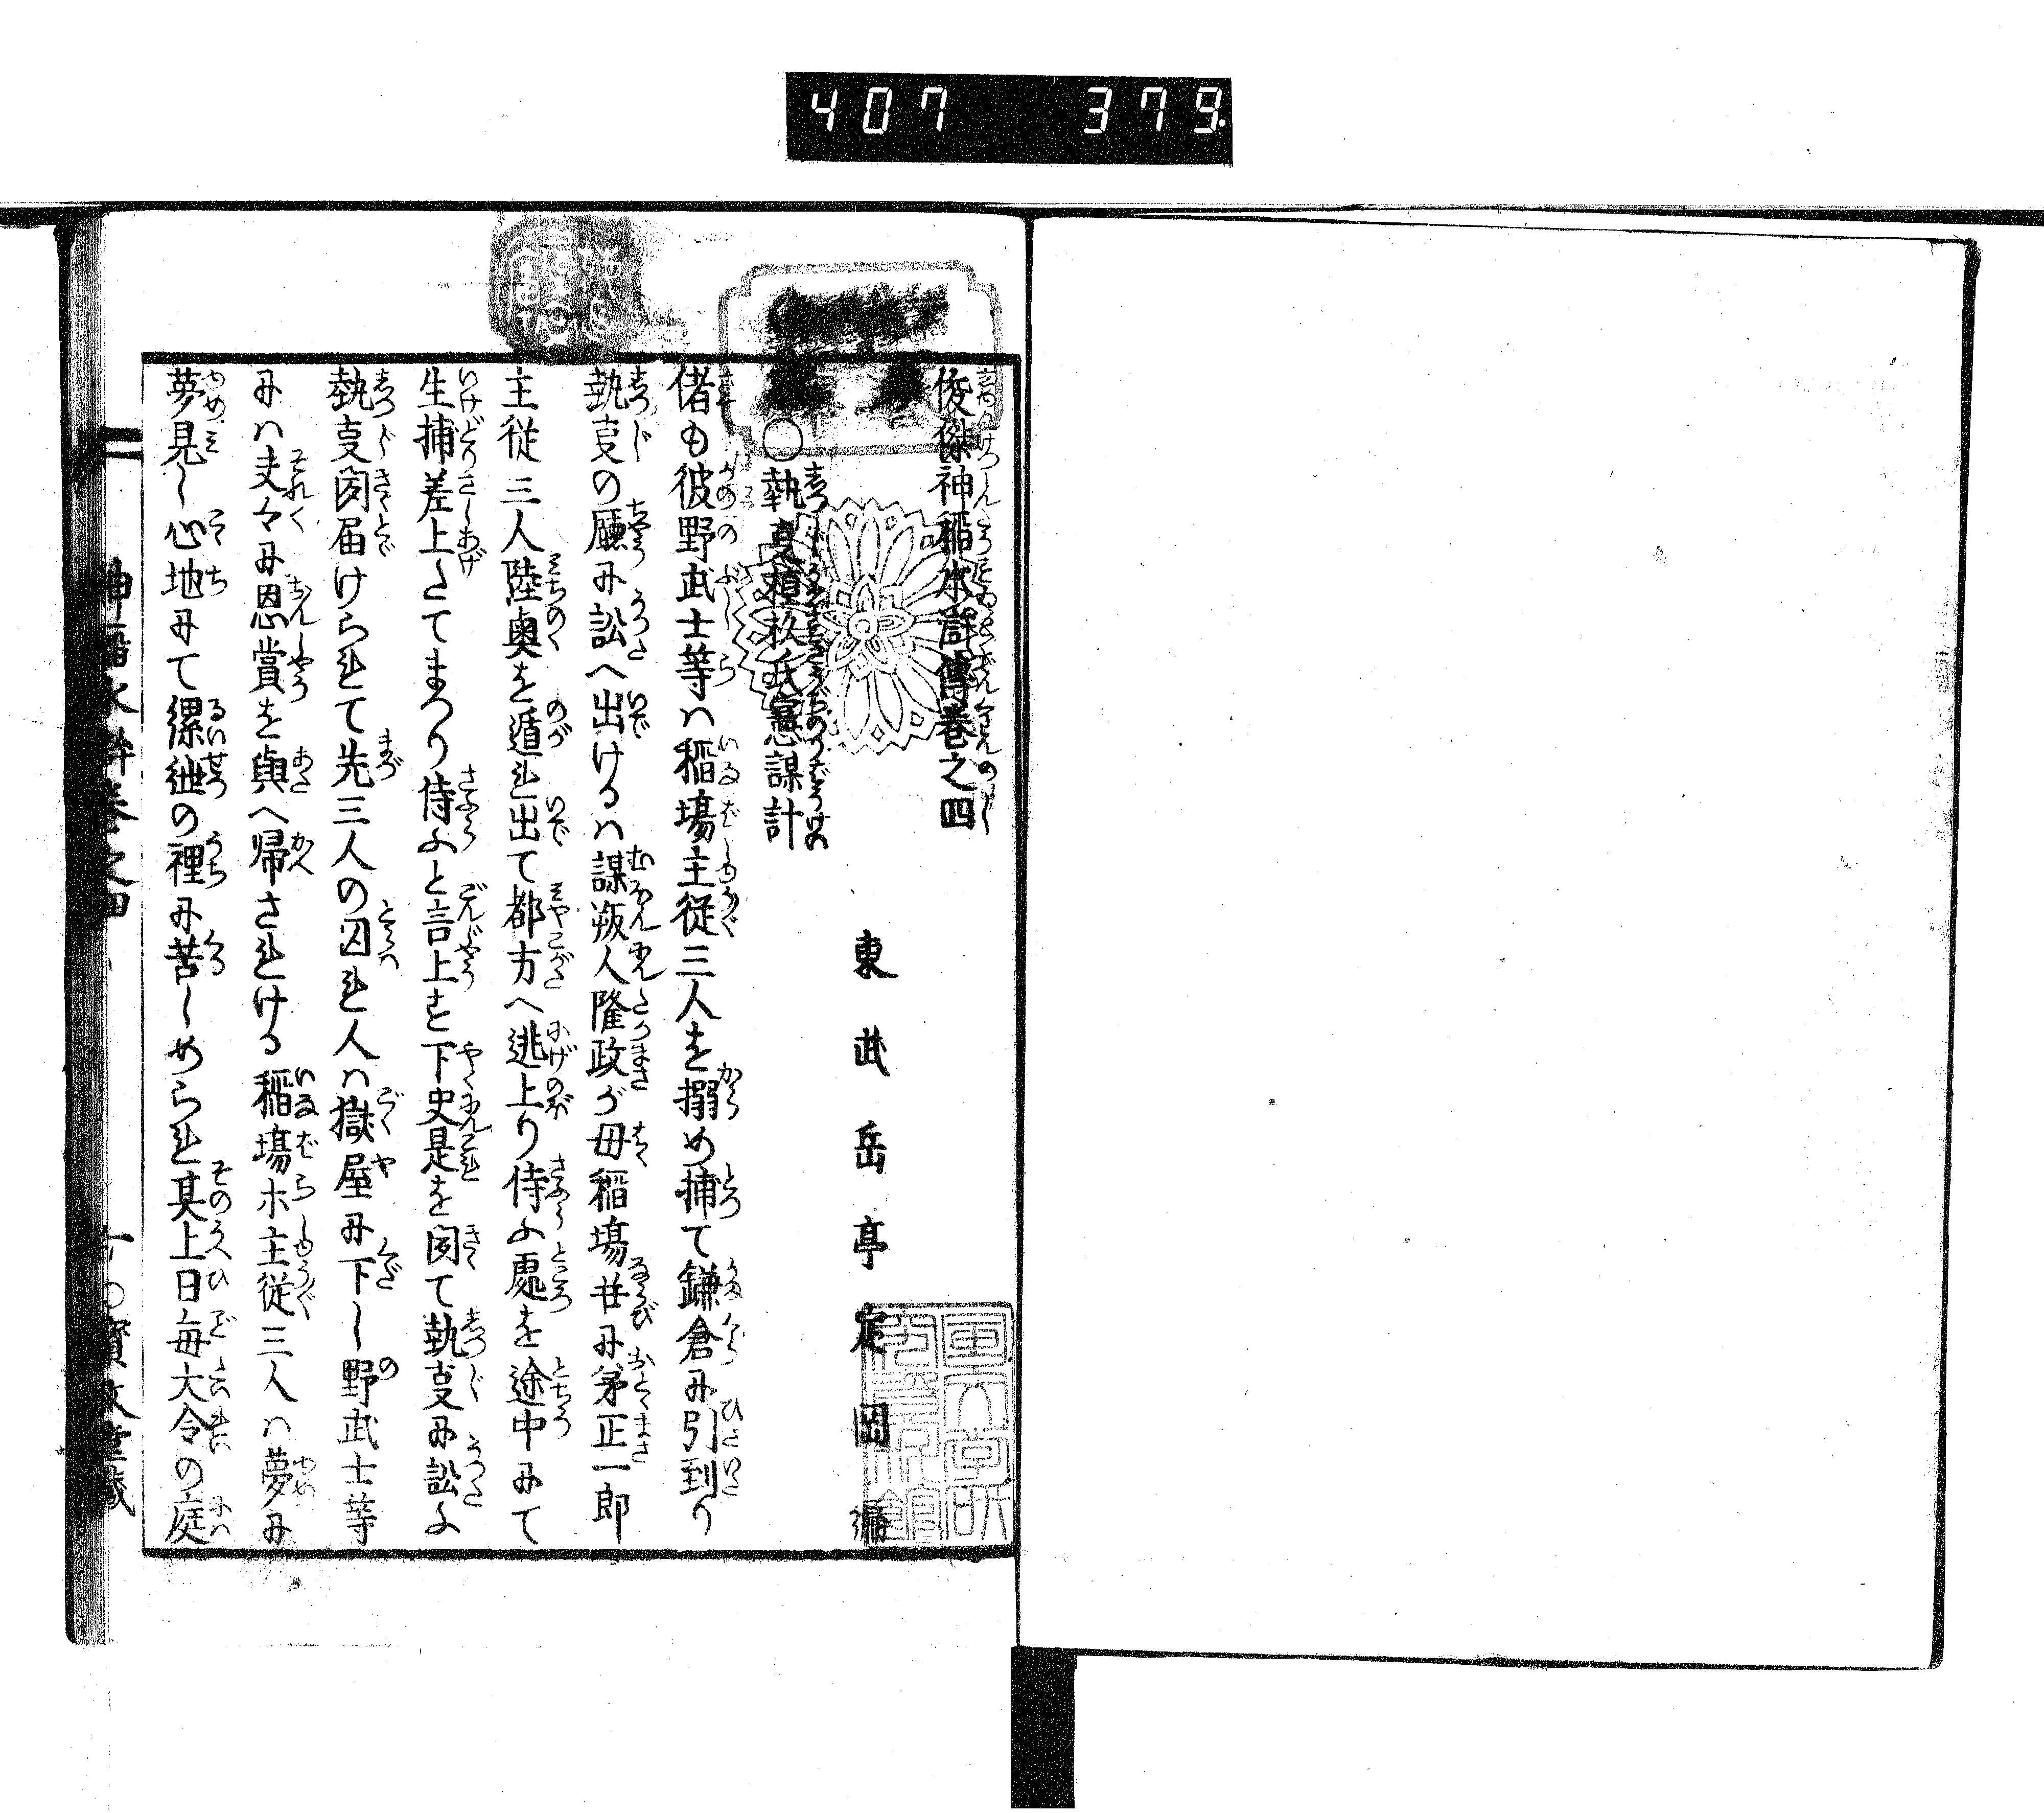 407 379
俊傑神稲水滸傳巻之四
東武岳亭定岡編
○執事植杦氏憲謀計
偖も彼野武士等ハ稲塲主従三人を搦め捕て鎌倉に引到り
執事の廰に訟へ出けるハ謀叛人隆政が母稲塲並に弟正一郎
主従三人陸奥を遁れ出て都方へ逃上り侍ふ處を途中にて
生捕差上たてまつり侍ふと言上す下吏是を聞て執事に訟ふ
執事聞届けられて先三人の囚れ人ハ獄屋に下し野武士等
にハ夫々に恩賞を與へ帰されける稲塲ホ主従三人ハ夢に
夢見し心地にて縲絏の裡に苦しめられ其上日毎大令の庭
神稲水滸巻之四